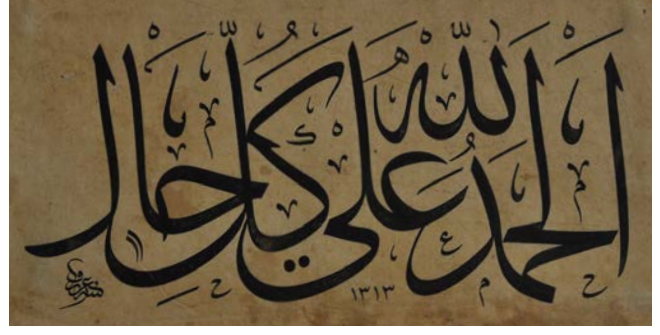 الحمد لله على كل حال
١٣١٣